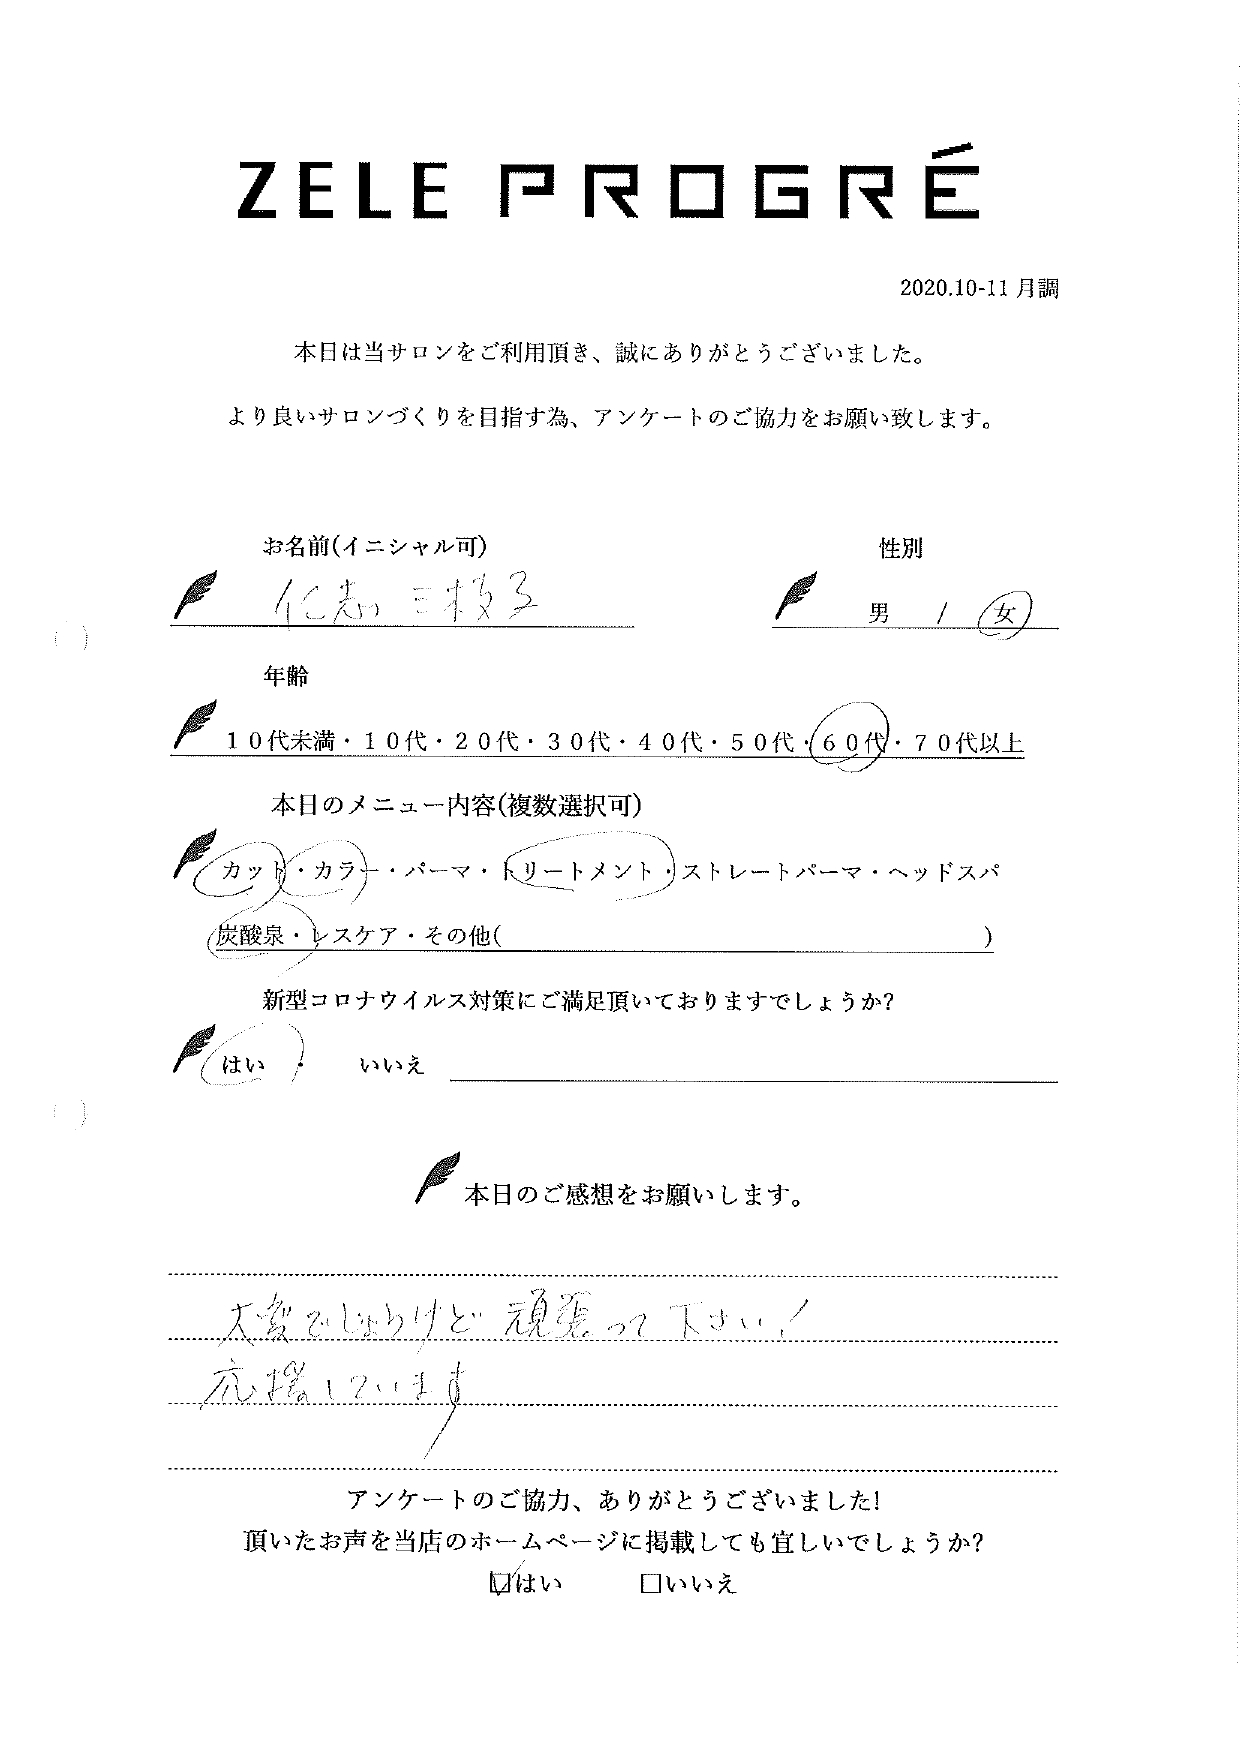 ZELE PROGRÉ
2020.10-11 月調
本日は当サロンをご利用頂き、誠にありがとうございました。
より良いサロンづくりを目指す為、アンケートのご協力をお願い致します。
お名前(イニシャル可)
性別
三枝子
男 / 女
年齢
１０代未満・１０代・２０代・３０代・４０代・５０代・６０代・７０代以上
本日のメニュー内容(複数選択可)
カット・カラー・パーマ・トリートメント・ストレートパーマ・ヘッドスパ
炭酸泉・レスケア・その他( )
新型コロナウイルス対策にご満足頂いておりますでしょうか?
はい ・ いいえ
本日のご感想をお願いします。
大変でしょうけど 頑張って下さい!
応援しています
アンケートのご協力、ありがとうございました!
頂いたお声を当店のホームページに掲載しても宜しいでしょうか?
☑はい □いいえ